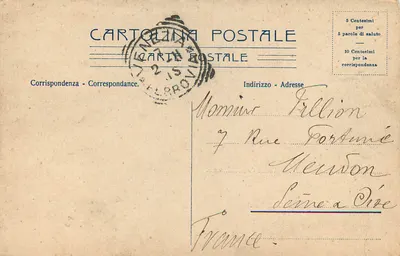 CARTOLINA POSTALE
CARTE POSTALE
5 Centesimi
per
5 parole di saluto
10 Centesimi
per la
corrispondenza
Corrispondenza - Correspondance.
Indirizzo - Adresse
FERROVIA
Monsieur Fillion
7 Rue Fortuné
Meudon
Seine & Oise
France.